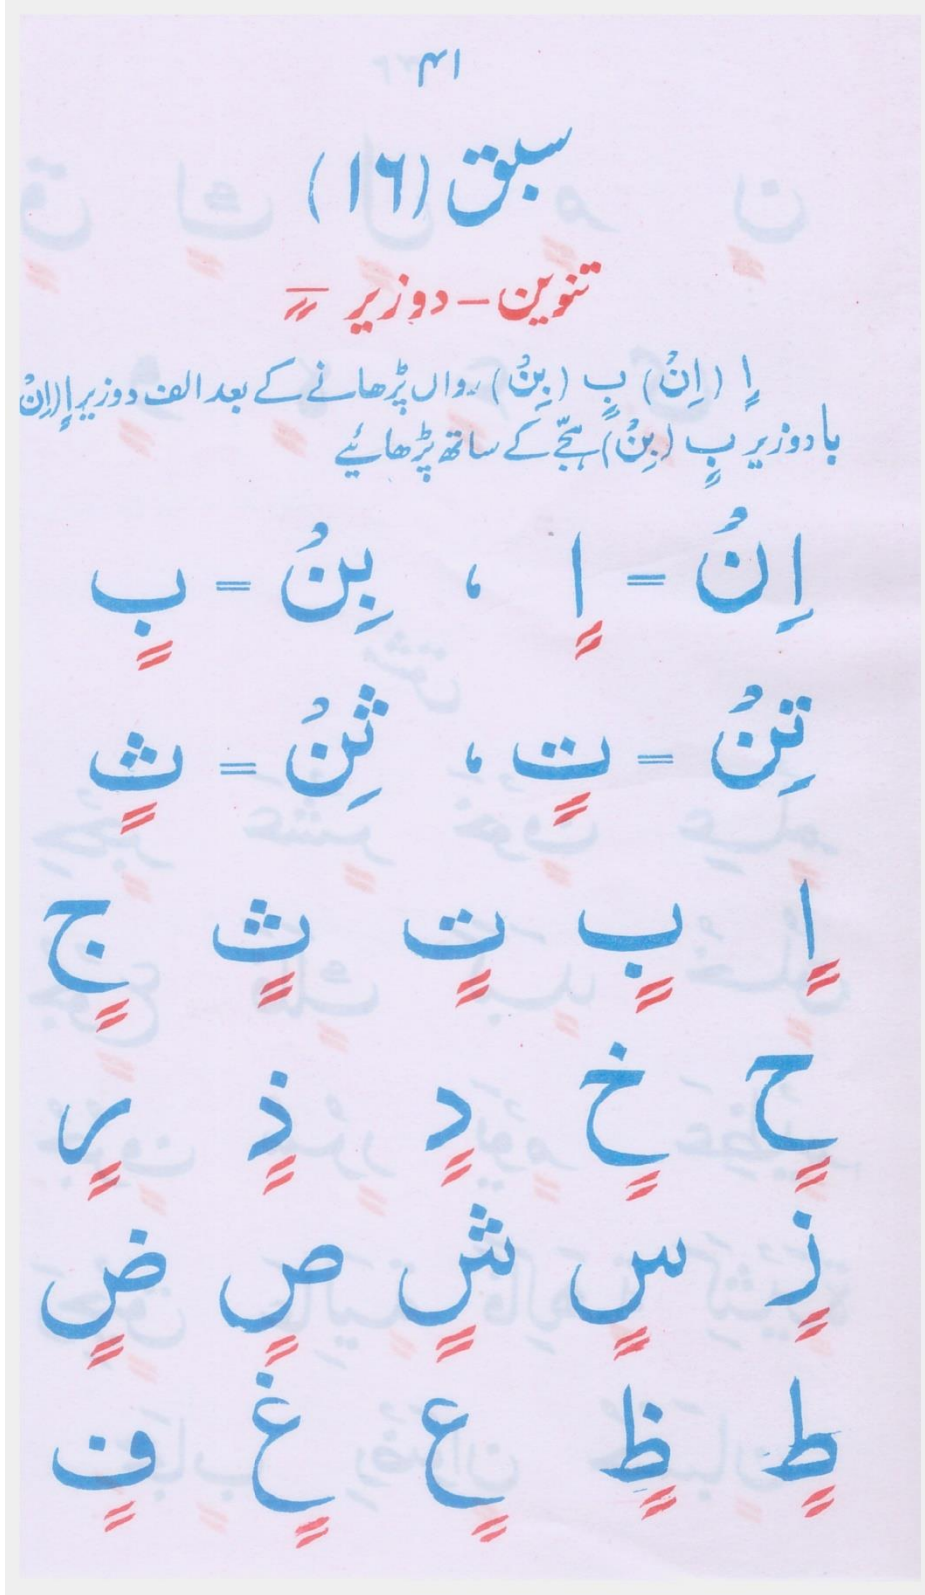 ۴۱
سبق (١٦)
تنوین - دو زیر ــٍـ
اٍ (اِنْ) بٍ (بِنْ) رواں پڑھانے کے بعد الف دو زیر اٍ (اِنْ)
با دو زیر بٍ (بِنْ) ہجّے کے ساتھ پڑھائیے
اِنْ = اٍ ، بِنْ = بٍ
تِنْ = تٍ ، ثِنْ = ثٍ
اٍ بٍ تٍ ثٍ جٍ
حٍ خٍ دٍ ذٍ رٍ
زٍ سٍ شٍ صٍ ضٍ
طٍ ظٍ عٍ غٍ فٍ